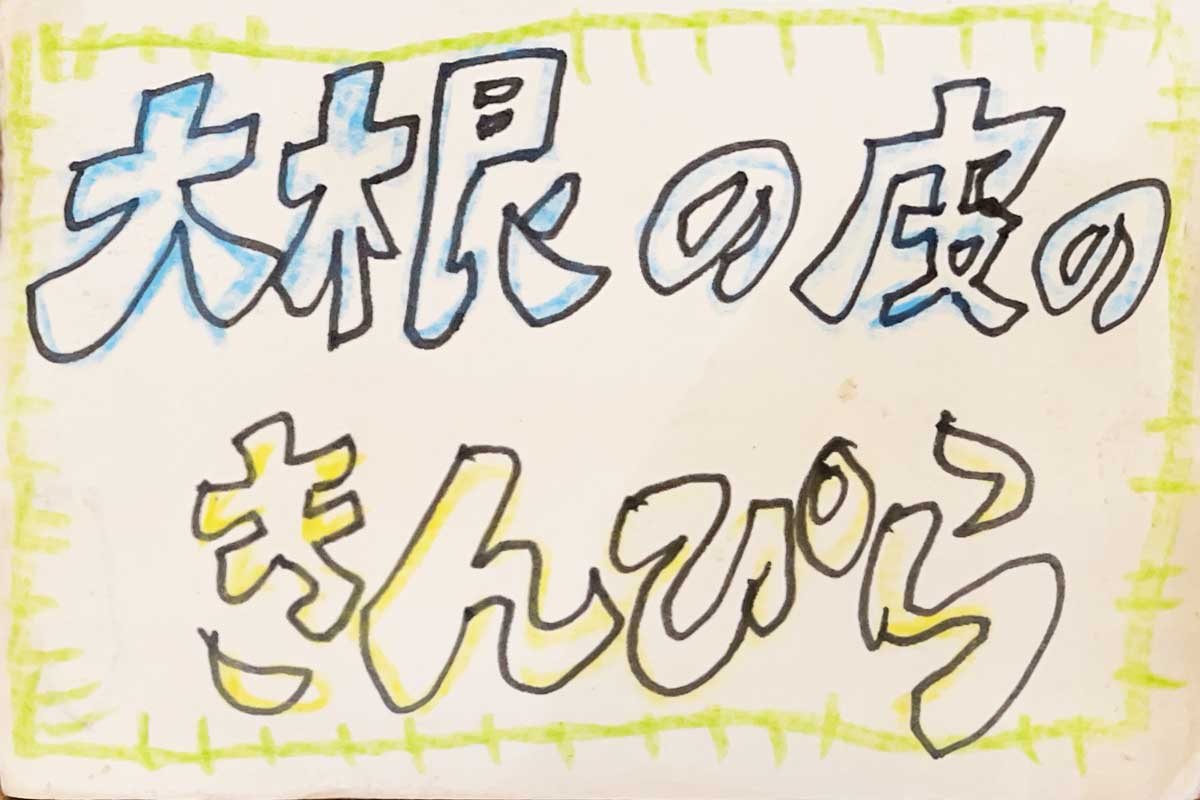 大根の皮の
きんぴら